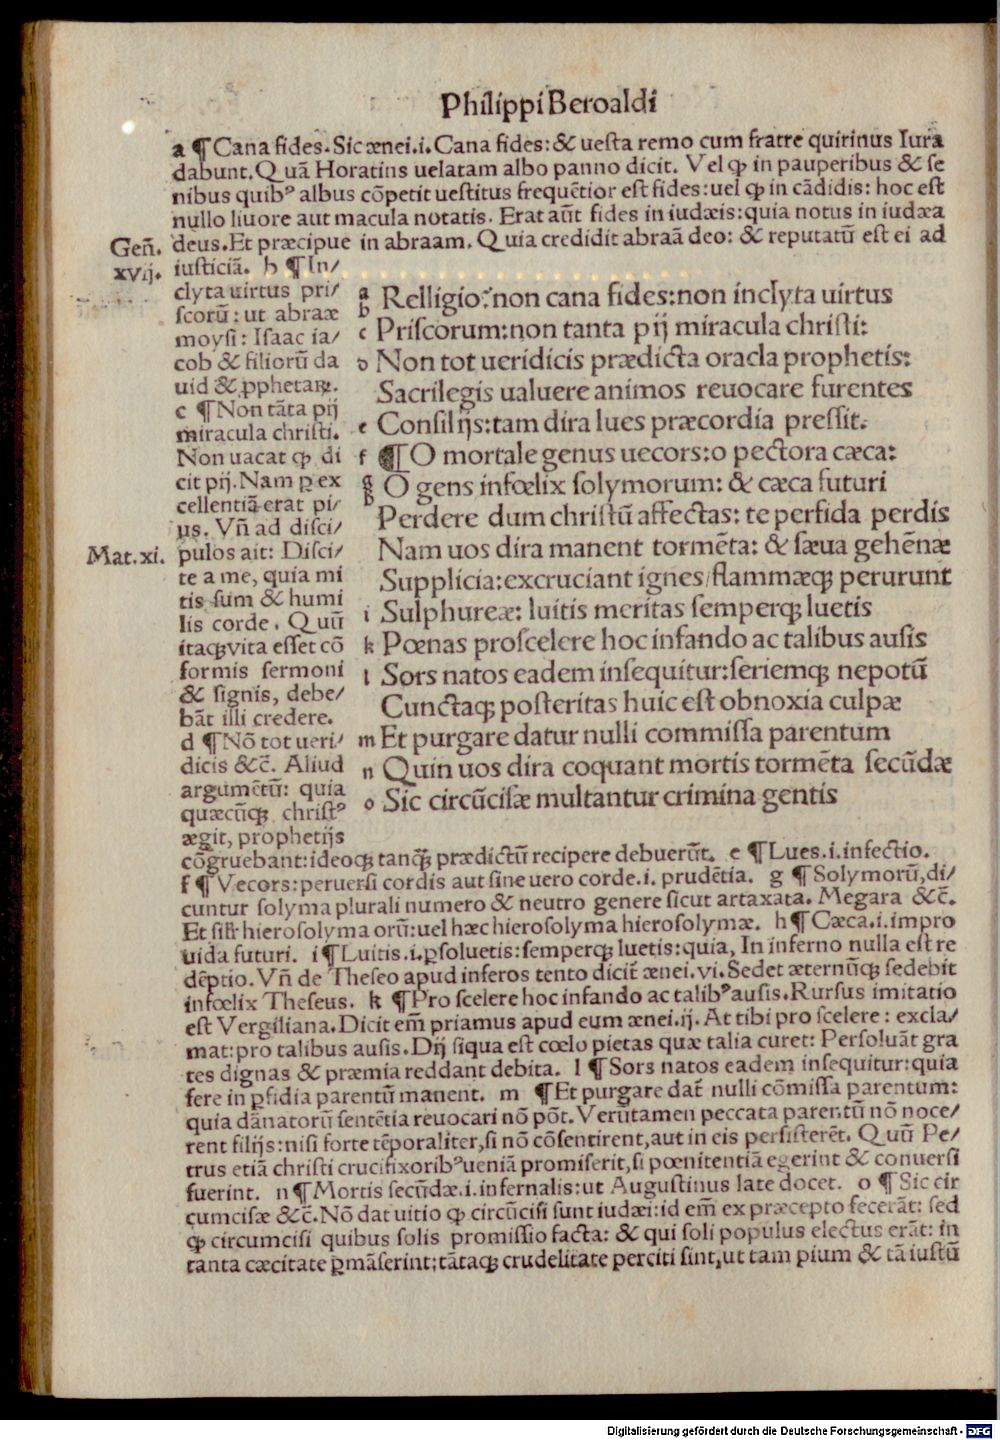 Philippi Beroaldi
a ¶ Cana fides. Sic ænei.i. Cana fides: & uesta remo cum fratre quirinus Iura
dabunt. Quā Horatius uelatam albo panno dicit. Vel ꝙ in pauperibus & se
nibus quibꝰ albus cōpetit uestitus frequētior est fides: uel ꝙ in cādidis: hoc est
nullo liuore aut macula notatis. Erat aūt fides in iudæis: quia notus in iudæa
Geñ.
xvij.
deus. Et præcipue in abraam. Quia credidit abraā deo: & reputatū est ei ad
iusticiā. b ¶ In/
clyta uirtus pri/
scorū: ut abraæ
moysi: Isaac ia/
cob & filiorū da
uid & ꝓphetaꝝ.
c ¶ Non tāta pij
miracula christi.
Non uacat ꝙ di
cit pij. Nam ꝑ ex
cellentiā erat pi/
us. Vñ ad disci/
Mat.xi.
pulos ait: Disci/
te a me, quia mi
tis sum & humi
lis corde. Quū
itaqꝫ vita esset cō
formis sermoni
& signis, debe/
bāt illi credere.
d ¶ Nō tot ueri/
dicis &c̄. Aliud
argumētū: quia
quæcūqꝫ christꝰ
ægit, prophetijs
a Relligio: non cana fides: non inclyta uirtus
b
c Priscorum: non tanta pij miracula christi:
d Non tot ueridicis prædicta oracla prophetis:
Sacrilegis ualuere animos reuocare furentes
e Consilijs: tam dira lues præcordia pressit.
f ¶ O mortale genus uecors: o pectora cæca:
g O gens infœlix solymorum: & cæca futuri
h
Perdere dum christū affectas: te perfida perdis
Nam uos dira manent tormēta: & sæua gehēnæ
Supplicia: excruciant ignes/ flammæqꝫ perurunt
i Sulphureæ: luitis meritas semperqꝫ luetis
k Pœnas pro scelere hoc infando ac talibus ausis
l Sors natos eadem insequitur: seriemqꝫ nepotū
Cunctaqꝫ posteritas huic est obnoxia culpæ
m Et purgare datur nulli commissa parentum
n Quin uos dira coquant mortis tormēta secūdæ
o Sic circūcisæ multantur crimina gentis
cōgruebant: ideoqꝫ tanqꝫ̄ prædictū recipere debuerūt. e ¶ Lues.i. infectio.
f ¶ Vecors: peruersi cordis aut sine uero corde.i. prudētia. g ¶ Solymorū, di/
cuntur solyma plurali numero & neutro genere sicut artaxata. Megara &c̄.
Et sil̄r hierosolyma orū: uel hæc hierosolyma hierosolymæ. h ¶ Cæca.i. impro
uida futuri. i ¶ Luitis.i. ꝑsoluetis: semperqꝫ luetis: quia, In inferno nulla est re
dēptio. Vñ de Theseo apud inferos tento dicit̄ ænei.vi. Sedet æternūqꝫ sedebit
infœlix Theseus. k ¶ Pro scelere hoc infando ac talibꝰ ausis. Rursus imitatio
est Vergiliana. Dicit em̄ priamus apud eum ænei.ij. At tibi pro scelere: excla/
mat: pro talibus ausis. Dij siqua est cœlo pietas quæ talia curet: Persoluāt gra
tes dignas & præmia reddant debita. l ¶ Sors natos eadem insequitur: quia
fere in ꝑfidia parentū manent. m ¶ Et purgare dat̄ nulli cōmissa parentum:
quia dānatorū sentētia reuocari nō pōt. Verūtamen peccata parentū nō noce/
rent filijs: nisi forte tēporaliter, si nō cōsentirent, aut in eis persisterēt. Quū Pe/
trus etiā christi crucifixoribꝰ ueniā promiserit, si pœnitentiā egerint & conuersi
fuerint. n ¶ Mortis secūdæ.i. infernalis: ut Augustinus late docet. o ¶ Sic cir
cumcisæ &c̄. Nō dat uitio ꝙ circūcisi sunt iudæi: id em̄ ex præcepto fecerāt: sed
ꝙ circumcisi quibus solis promissio facta: & qui soli populus electus erāt: in
tanta cæcitate ꝑmāserint: tātaqꝫ crudelitate perciti sint, ut tam pium & tā iustū
Digitalisierung gefördert durch die Deutsche Forschungsgemeinschaft - DFG